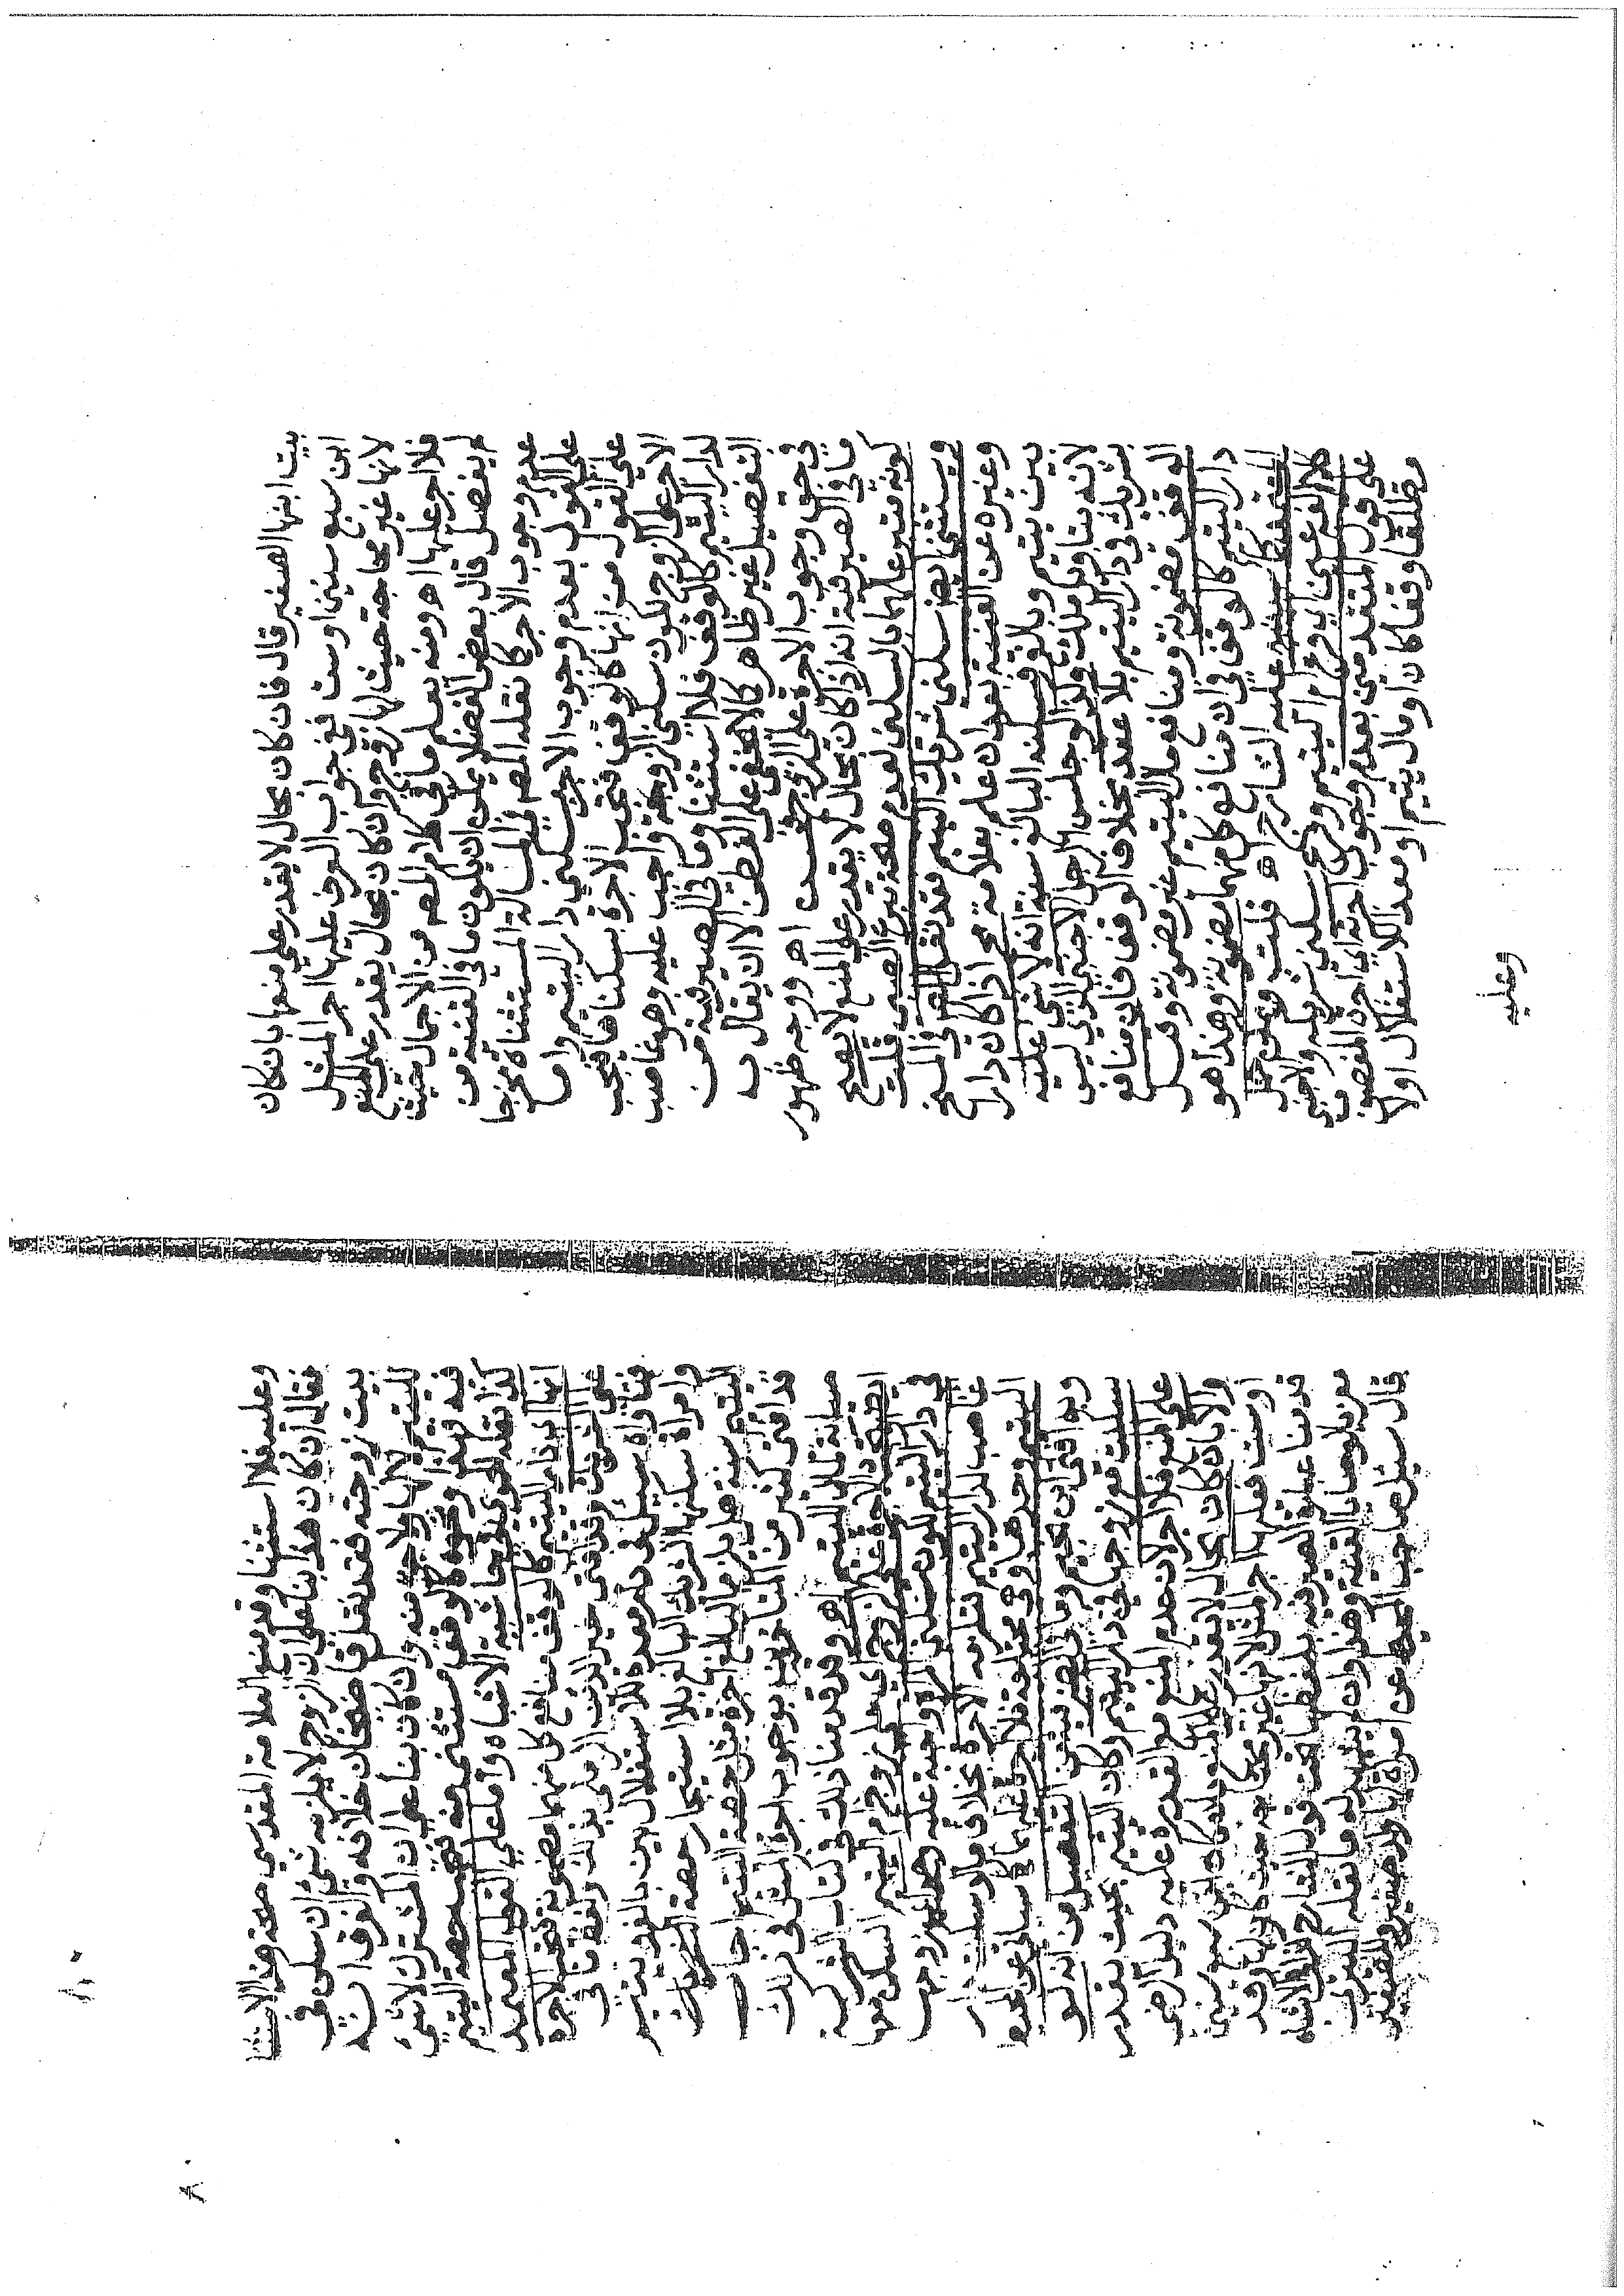 بيت ابنها الصغير قال فان كان بحال لا يقدر علي منعها بان كان
ابن سبع سنين او ست ففي جواب العرف عليها اجر المثل
لانها غير محتاجة حيث لها زوج وان كان بحال يقدر علي المنع
فلا اجر عليها اه ومنه يعلم ما في كلام المص من الاجمال حيث
لم يفصل قال بعض الفضلا يمكن ان يكون ما في القنية من
عدم وجوب الاجر كما نقله المص في المسالة المستثناة مخرجا
علي القول بعدم وجوب الاجر بسكني دار اليتيم واما
علي القول من انها كالوقف فتجب الاجرة بسكناها فيجب
الاجر علي الزوج لكون سكني الزوجة واجب عليه وهو غاصب
لدار اليتيم كالوقف فلا استثنا وما في الصيرفية من
التفصيل غير ظاهر كما لا يخفي علي الفطن الا ان يقال به
في حق وجوب الاجرة علي الزوج اه ووجه ظهور
ما في الصيرفية انه اذا كان بحال لا يقدر علي المنع لا يصح
كونه متبرعا لهما بالسكني لعدم صحة تبرع الصبي قلت
ويستثني ايضا سكني شريك اليتيم فقد نقل المص في المنح
وغيره عن القنية بعد ان علم بعلامة مح اذا كان دارا
بين يتيم وبالغ فسكنه البالغ سنة انه لا شي عليه
لانه بتاويل ملك ولذا لو جلس الرجل الاجنبي الذي ليس
بشريك في دار اليتيم بلا عقد بخلاف الوقف فان منافع
الوقف مضمونة ومنافع مال اليتيم غير مضمونة وقيل
دار اليتيم كالوقف في ان منافع كل منهما مضمونة وهذا هو
المعتمد كما سينبه عليه الشارح اه قلت
كلام اي فرع ام اليتيم وفرع سكني شريكه والاجنبي
علي قول المتقدمين بعدم وجوب اجرة اي اجر المغصوب
مطلقا وقفا كان او مال يتيم او معدا للاستغلال اولا
وعليه
وعليه فلا استثنا وقد منع العلامة المقدسي صحة هذا الاستثنا
فقال ان كان هذا بنا علي ان الزوج لا يلزمه شي ان سكن في
بيت زوجته فقد نقل قاضيخان خلافه والفرق انه
لليتيم لا لها ولا منه وان كان بنا علي ان المشترك لا شي
فيه فهذا ونحوه كالوقف مستثني منه فتجب حصة اليتيم
كذا نقله الحموي في حاشية الاشباه واما علي القول المعتمد
انها اي دار اليتيم كالوقف منافع كل منهما مضمونة فتجب الاجرة
علي الشريك وقد افتي خير الدين الرملي بذلك ونصه ما في
فتاواه سئل في دار معدة للاستغلال بين بالغ ويتيم
وامراة سكنها الشريك البالغ بلا استيجار حصة الشريك
اليتيم سنة هل يلزم البالغ اجرة مثل حصة اليتيم اجاب
قد افتي كثير من المتاخرين بوجوب اجرة المثل في ذلك
صيانة لمال اليتيم اه وقد قدمنا ذلك في كتاب الشركة
الاجرة علي الزوج اي علي زوج ام اليتيم
في دار اليتيم لكون سكني الزوجة واجبة عليه وهو
غاصب لدار اليتيم فتلزمه الاجرة بخلاف ما لو سكنت دار
اليتيم وحدها وهي محتاجة فلا اجرة عليها كما سياتي عن
وبه افتي ابن نجيم وما في من التفصيل من انه لو
سكنت مع زوجها في دار اليتيم وكان اليتيم بحيث يقدر
علي المنع فلا اجر لان عدم المنع مع القدرة عليه دليل الرضي
والا بان كان بحال لا يقدر علي المنع كان ابن سبع سنين
او ست فعليها اجر المثل لانها غير محتاجة حيث كان لها زوج وقد
قدمنا عبارة الصيرفية بلفظها تحت قول الشارح الاشباه
لوصايا القنية وهذا وان لم له ما نقله
قال سئل صاحب المحيط عن امراة لها ولد صغير
٨